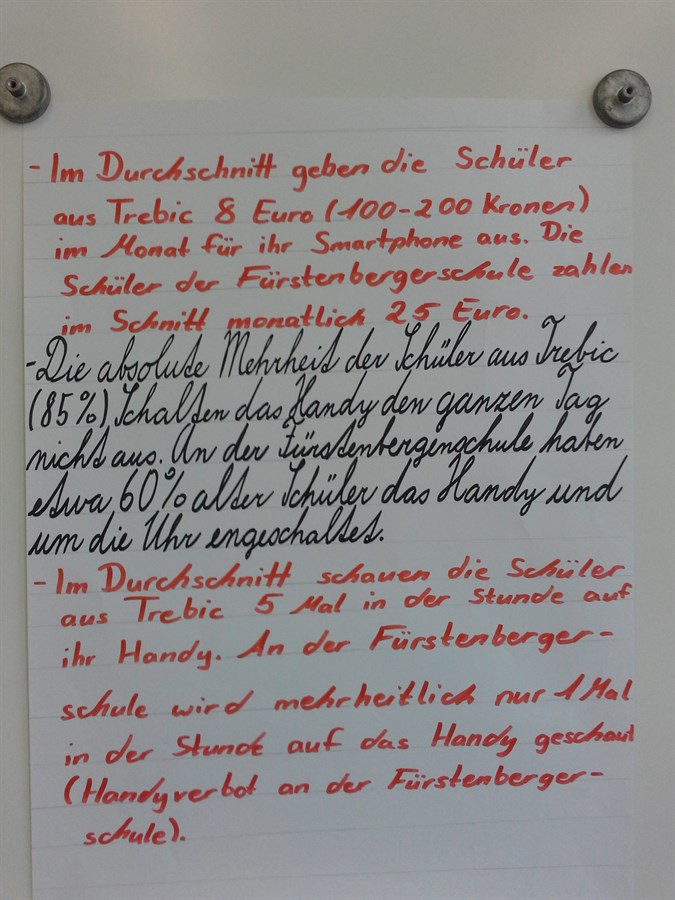 - Im Durchschnitt geben die Schüler
aus Trebic 8 Euro (100-200 Kronen)
im Monat für ihr Smartphone aus. Die
Schüler der Fürstenbergerschule zahlen
im Schnitt monatlich 25 Euro.
- Die absolute Mehrheit der Schüler aus Trebic
(85%) Schalten das Handy den ganzen Tag
nicht aus. An der Fürstenbergenschule haben
etwa 60% aller Schüler das Handy und
um die Uhr engeschaltet.
- Im Durchschnitt schauen die Schüler
aus Trebic 5 Mal in der Stunde auf
ihr Handy. An der Fürstenberger-
schule wird mehrheitlich nur 1 Mal
in der Stunde auf das Handy geschaut
(Handyverbot an der Fürstenberger-
schule).